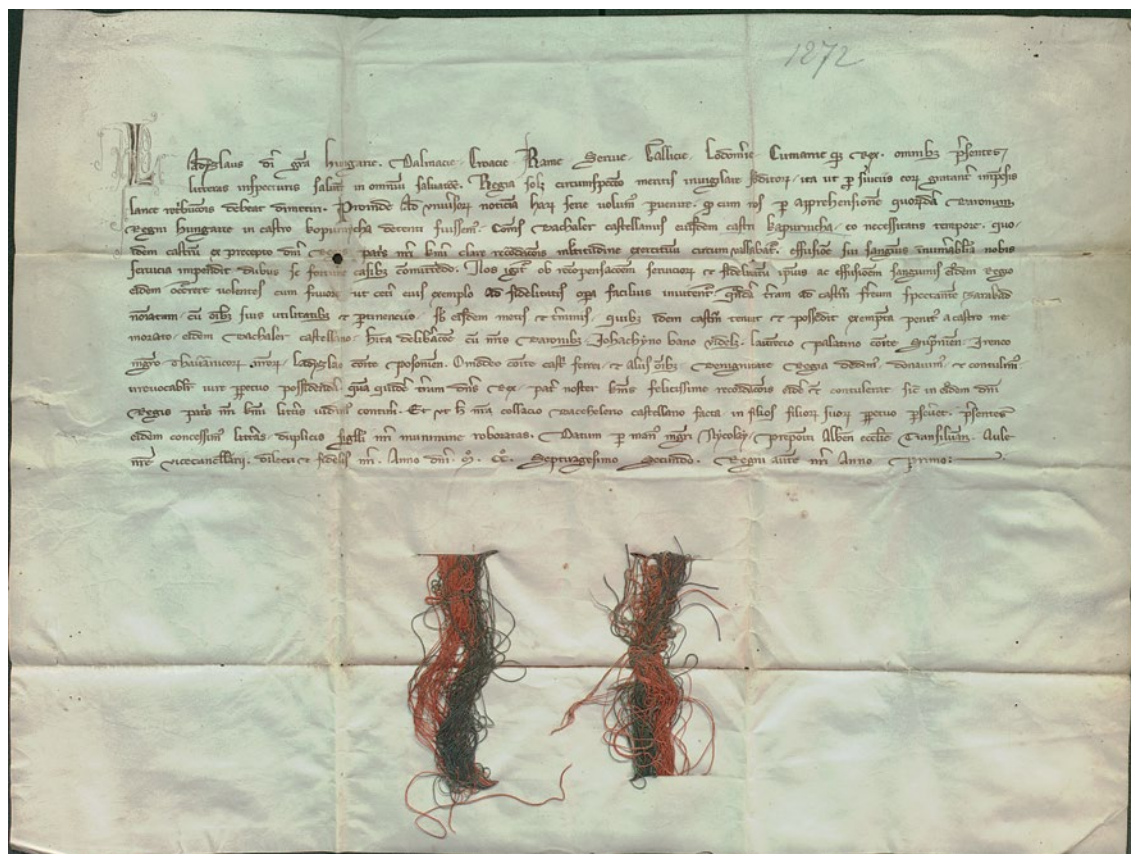 1272
Ladizlaus dei gra hungarie. Dalmacie. Croacie. Rame. Seruie. Gallicie. Lodomerie. Cumanie qz Rex. omnibz presentes
litteras inspecturis salutem in omnium saluatore. Regia solet circumspeccio meritis inuigilare ita ut per
lance debeat dimetiri. Proinde ad vniuersorum noticiam harum serie volumus peruenire. qd cum nos per apprehensionem quorundam Baronum
Regni hungarie in castro kopurncha detenti fuissem. Comes Bachaler castellanus eiusdem castri kapurncha. eo necessitatis tempore. quo
idem castrum ex precepto dni Regis patris nri kmi clare recordacionis multitudine exercituum circumuallabatur. effusione sui sanguinis nobis
seruicia impendit dubiis se fortune casibz comittendo. Nos igitur ob recompensacionem seruiciorum et fidelitatum ipsius ac effusionem sanguinis eidem Regio
eidem occurrere volentes cum fauore ut ceteri eius exemplo ad fidelitatis opera facilius inuitentur. quandam terram ad castrum ferreum spectantem Zarabad
nominatam. cum omibz suis utilitatibz et pertinenciis. sub eisdem metis et terminis quibz idem castrum tenuit et possedit exemptam penitus a castro me
morato. eidem Bachaler castellano. habita deliberacione cum nris Baronibz Johachyno bano videlz. laurencio palatino comite Supruniensi. Irenco
mgro thauarnicorum nrorum. Ladizlao comite posoniensi. Omodeo comite castri ferrei et aliis omibz Benignitate Regia dedimus donauimus et contulimus
irreuocabiliter iure perpetuo possidendam. quam quidem terram dns Rex. pater noster kmus felicissime recordacionis eidem contulerat sicut in eisdem dni
Regis patris nri kmi litteris vidimus contineri. Et ut hec nra collacio Bacchelerio castellano facta in filios filiorum suorum perpetuo perseueret. presentes
eidem concessimus litteras duplicis sigilli nri munimine roboratas. Datum per manus mgri Nycolay. prepositi Albensis ecclie Transiluane. Aule
nre vicecancellarii. dilecti et fidelis nri. Anno dni. M. CC. Septuagesimo Secundo. Regni autem nri Anno primo.